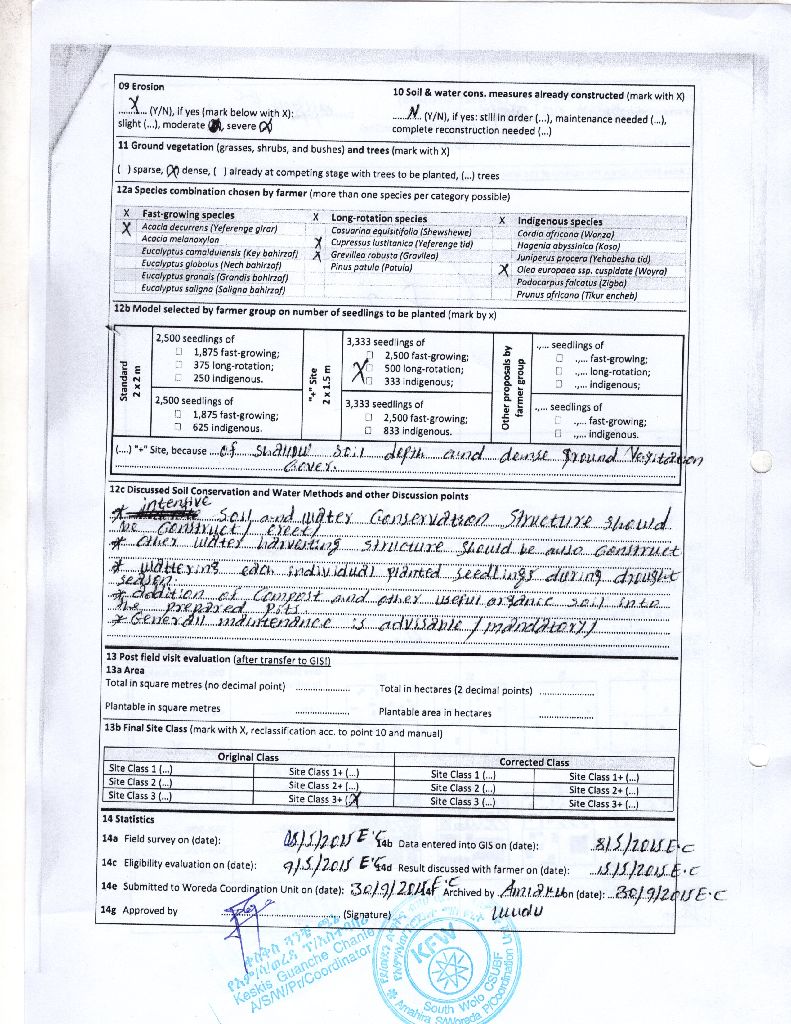 09 Erosion
10 Soil & water cons. measures already constructed (mark with X)
...X... (Y/N), if yes (mark below with X):
...N. (Y/N), if yes: still in order (...), maintenance needed (...),
slight (...), moderate, severe (X)
complete reconstruction needed (...)
11 Ground vegetation (grasses, shrubs, and bushes) and trees (mark with X)
( ) sparse, (X) dense, ( ) already at competing stage with trees to be planted, (...) trees
12a Species combination chosen by farmer (more than one species per category possible)
X Fast-growing species X Long-rotation species X Indigenous species
X Acacia decurrens (Yeferenge girar) Casuarina equisitifolia (Shewshewe) Cordia africana (Wanza)
Acacia melanoxylon X Cupressus lustitanica (Yeferenge tid) Hagenia abyssinica (Koso)
Eucalyptus camalduiensis (Key bahirzaf) X Grevillea robusta (Gravilea) Juniperus procera (Yehabesha tid)
Eucalyptus globolus (Nech bahirzaf) Pinus patula (Patula) X Olea europaea ssp. cuspidate (Woyra)
Eucalyptus granais (Grandis bahirzaf) Podocarpus falcatus (Zigba)
Eucalyptus saligna (Saligna bahirzaf) Prunus africana (Tikur encheb)
12b Model selected by farmer group on number of seedlings to be planted (mark by x)
Standard
2 x 2 m
2,500 seedlings of
1,875 fast-growing;
375 long-rotation;
250 indigenous.
2,500 seedlings of
1,875 fast-growing;
625 indigenous.
"+" Site
2 x 1.5 m
3,333 seedlings of
2,500 fast-growing;
X 500 long-rotation;
333 indigenous;
3,333 seedlings of
2,500 fast-growing;
833 indigenous.
Other proposals by
farmer group
.,... seedlings of
.,... fast-growing;
.,... long-rotation;
.,... indigenous;
.,... seedlings of
.,... fast-growing;
.,... indigenous.
(....) "+" Site, because ....of shallow soil depth and dense ground vegitation
cover.
12c Discussed Soil Conservation and Water Methods and other Discussion points
intensive
* Soil and water Conservation Structure should
be construct/ erect/
* other water harvesting structure should be also construct
* wattering each individual planted seedlings during drought
season.
* addition of compost and other useful organic soil into
the prepared pits
* General maintenance is advisable /mandatory/
13 Post field visit evaluation (after transfer to GIS!)
13a Area
Total in square metres (no decimal point) .................... Total in hectares (2 decimal points) ....................
Plantable in square metres .................... Plantable area in hectares ....................
13b Final Site Class (mark with X, reclassification acc. to point 10 and manual)
Original Class Corrected Class
Site Class 1 (...) Site Class 1+ (...) Site Class 1 (...) Site Class 1+ (...)
Site Class 2 (...) Site Class 2+ (...) Site Class 2 (...) Site Class 2+ (...)
Site Class 3 (...) Site Class 3+ (X) Site Class 3 (...) Site Class 3+ (...)
14 Statistics
14a Field survey on (date): /5/2015 E.C 14b Data entered into GIS on (date): 8/5/2015 E.C
14c Eligibility evaluation on (date): 9/5/2015 E.C 14d Result discussed with farmer on (date): 15/5/2015 E.C
14e Submitted to Woreda Coordination Unit on (date): 30/9/2015 E.C Archived by on (date): 30/9/2015 E.C
14g Approved by (Signature)
Keskis Guanche Chanie
A/S/W/Pr/Coordinator
KFW
South Wolo CSUBF
Amahira S/Woreda P/Coordination